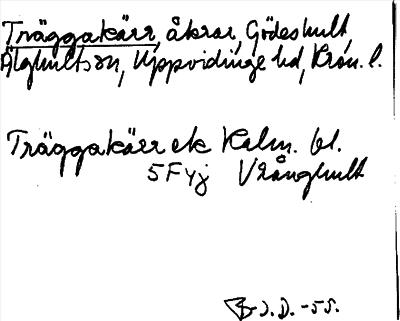 Träggakärr, åkrar, Gödeshult,
Älghults sn, Uppvidinge hd, Kron. l.
Träggakärr ek Kalm. bl.
5F yj Vrånghult
J. D. -55.